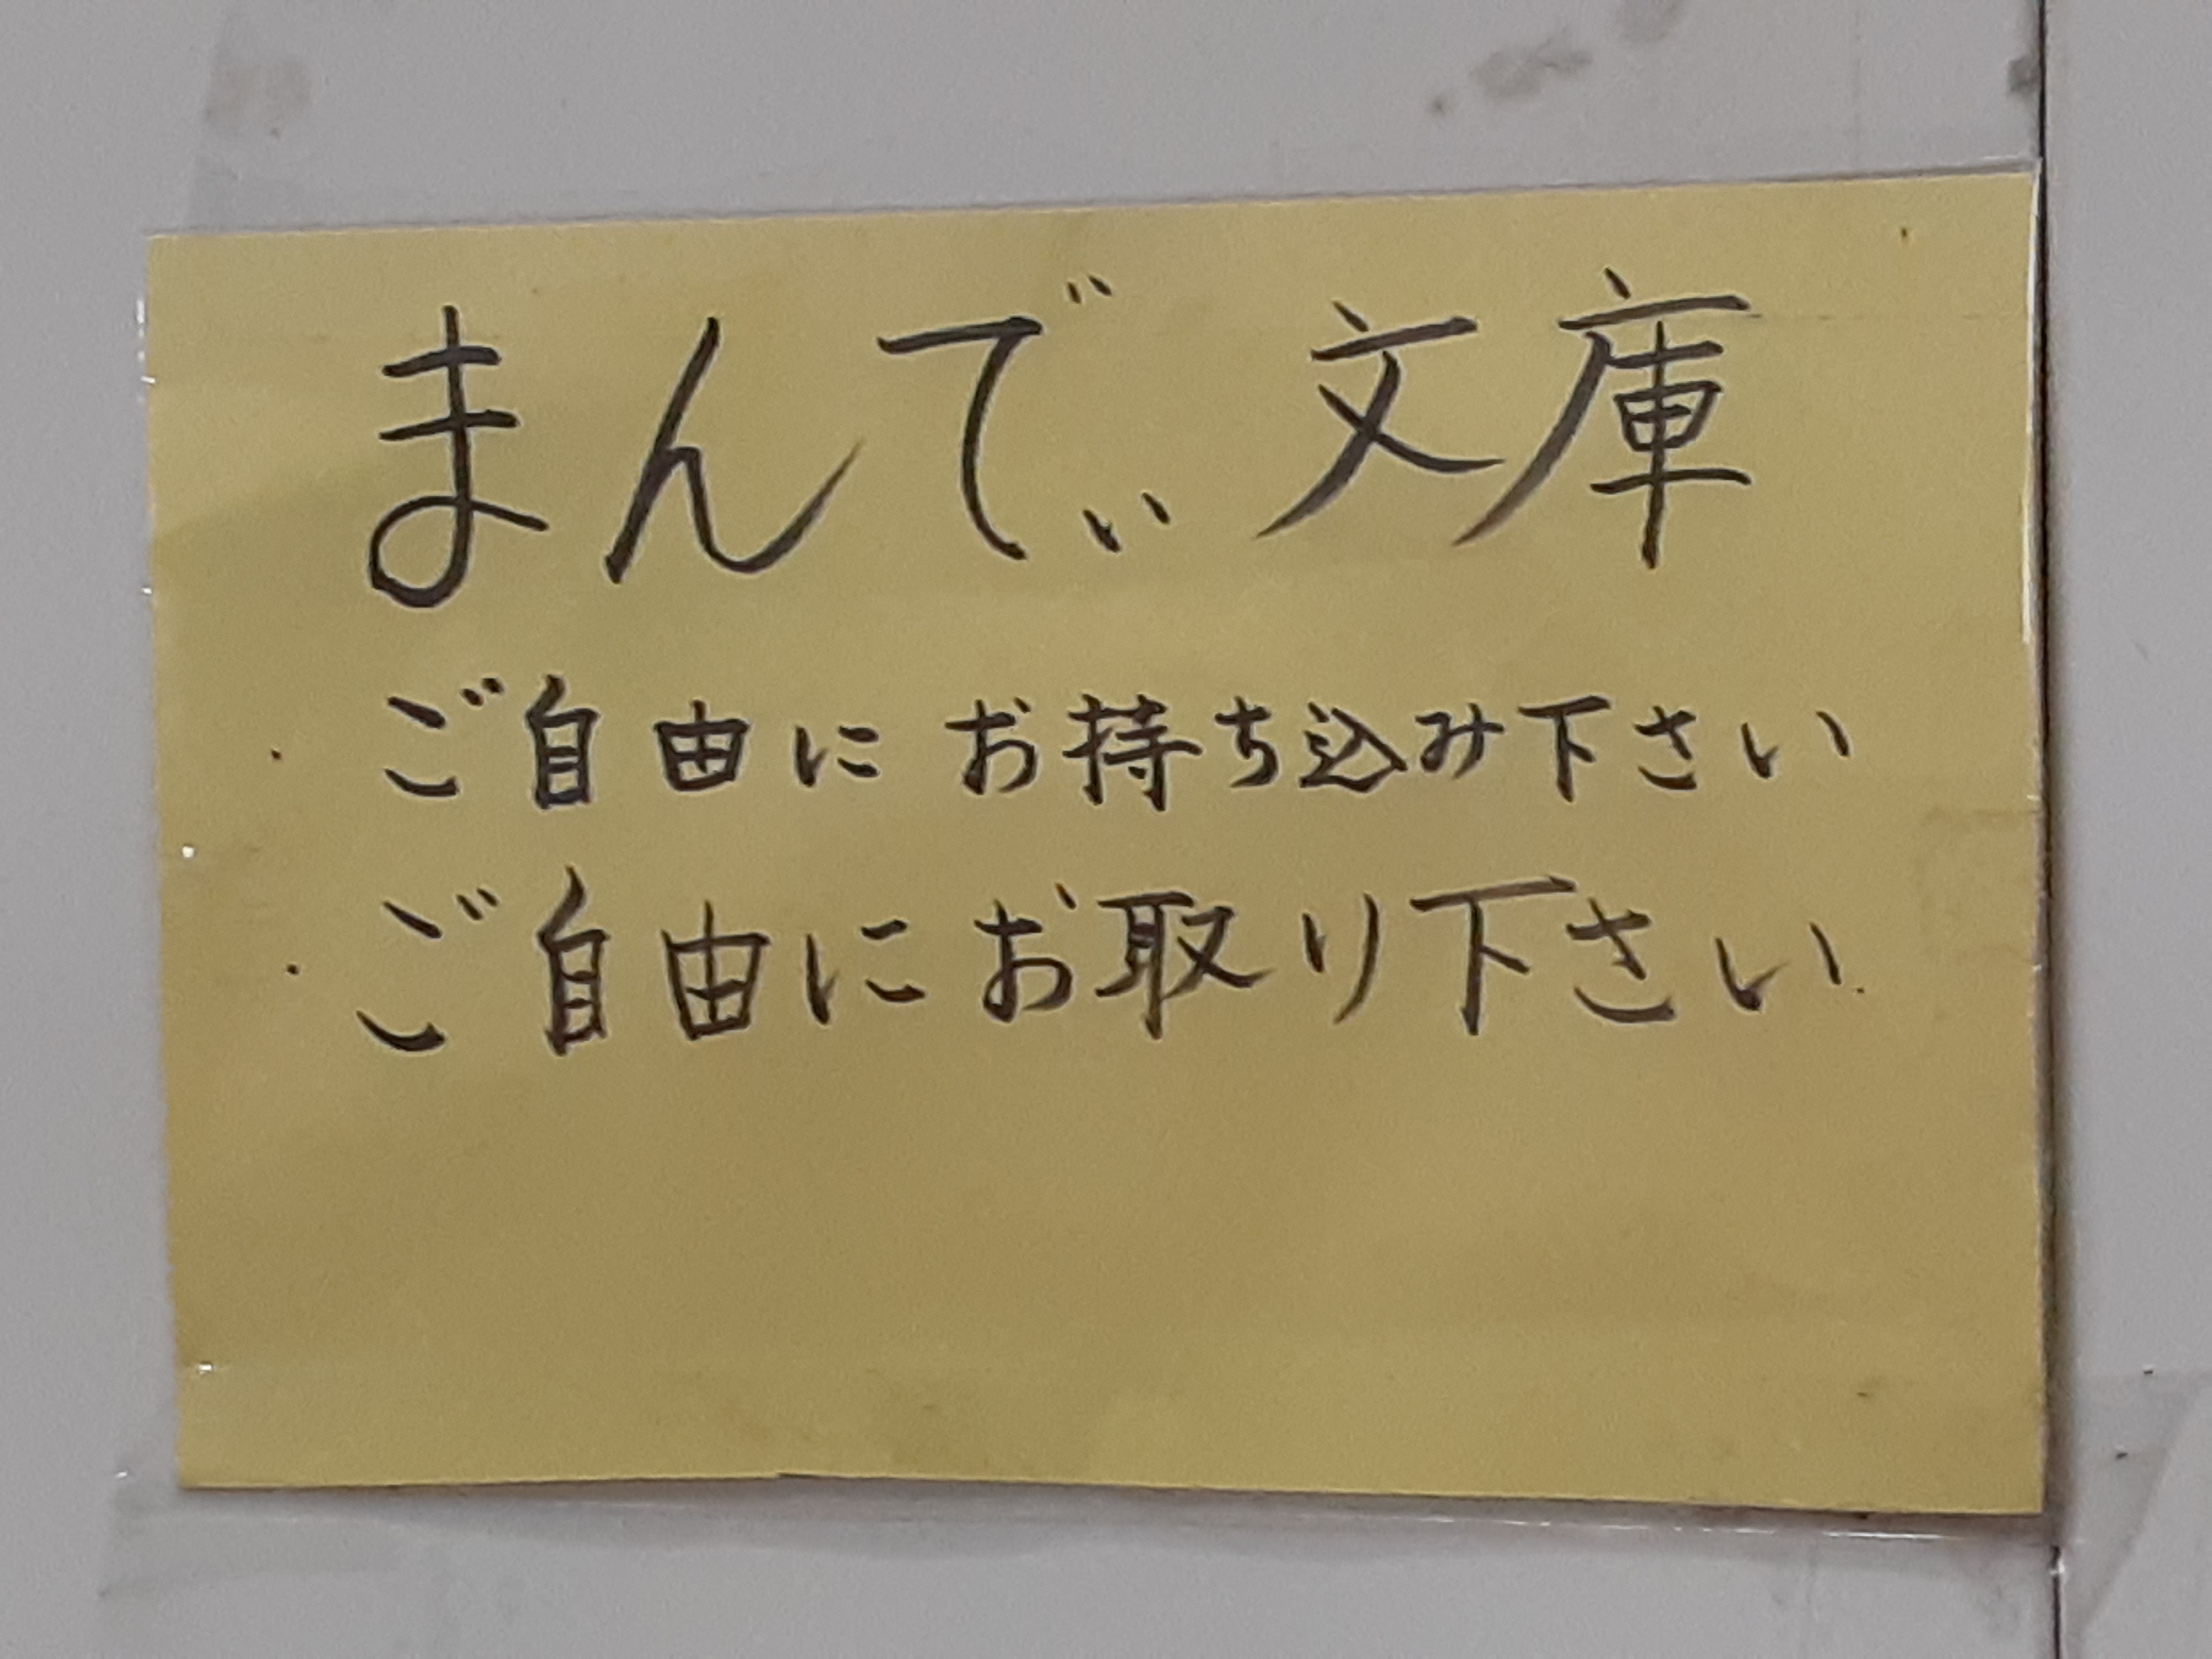 まんでぃ文庫
・ご自由にお持ち込み下さい
・ご自由にお取り下さい.